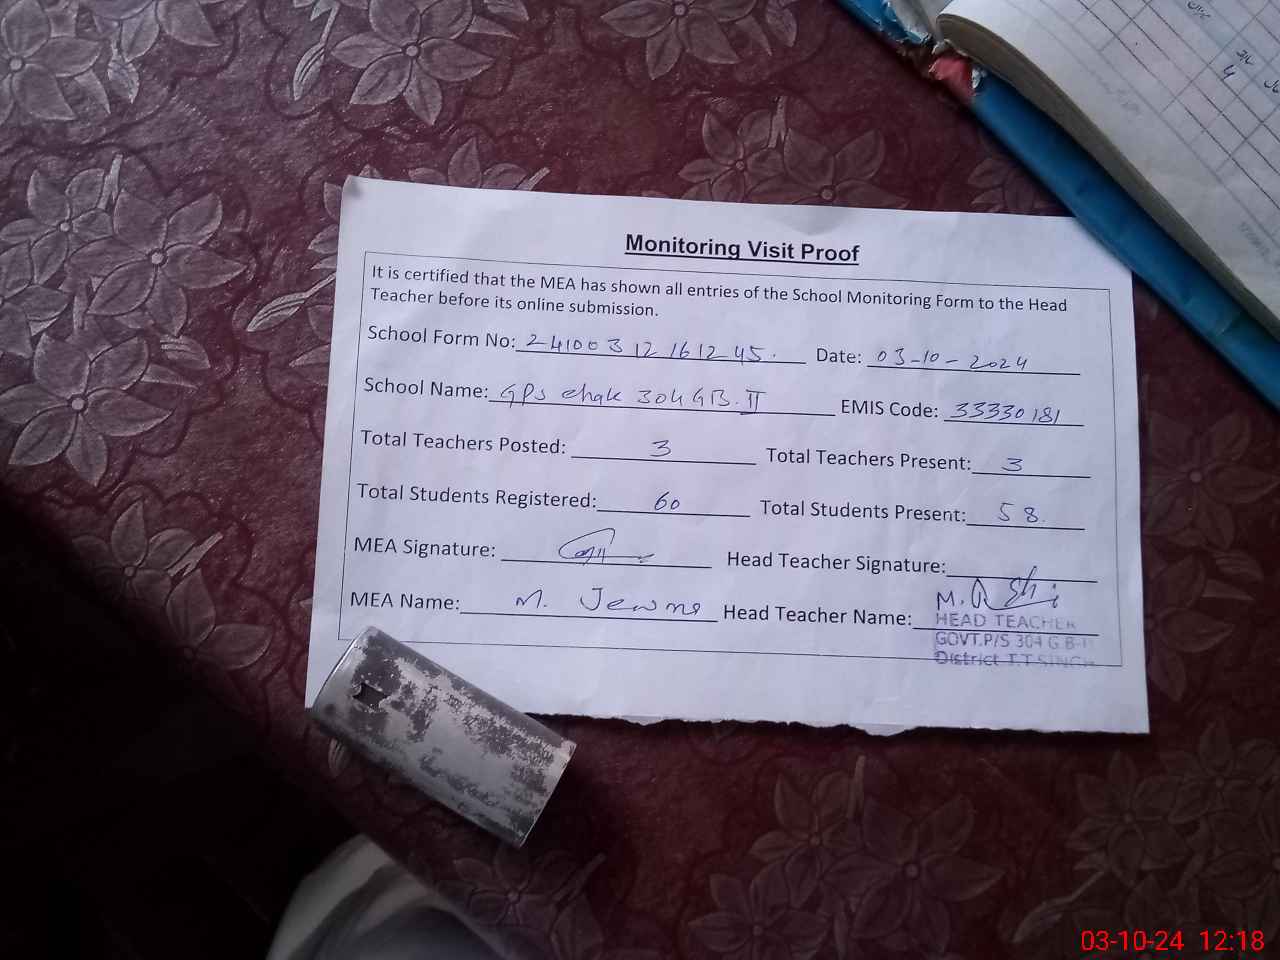 Monitoring Visit Proof
It is certified that the MEA has shown all entries of the School Monitoring Form to the Head
Teacher before its online submission.
School Form No: 24100312161245. Date: 03-10-2024
School Name: GPS chak 304 GB.II EMIS Code: 33330181
Total Teachers Posted: 3 Total Teachers Present: 3
Total Students Registered: 60 Total Students Present: 58.
MEA Signature: Head Teacher Signature:
MEA Name: M. Head Teacher Name: M.
HEAD TEACHER
GOVT.P/S 304 G.B-II
District T.T.SINGH
03-10-24 12:18